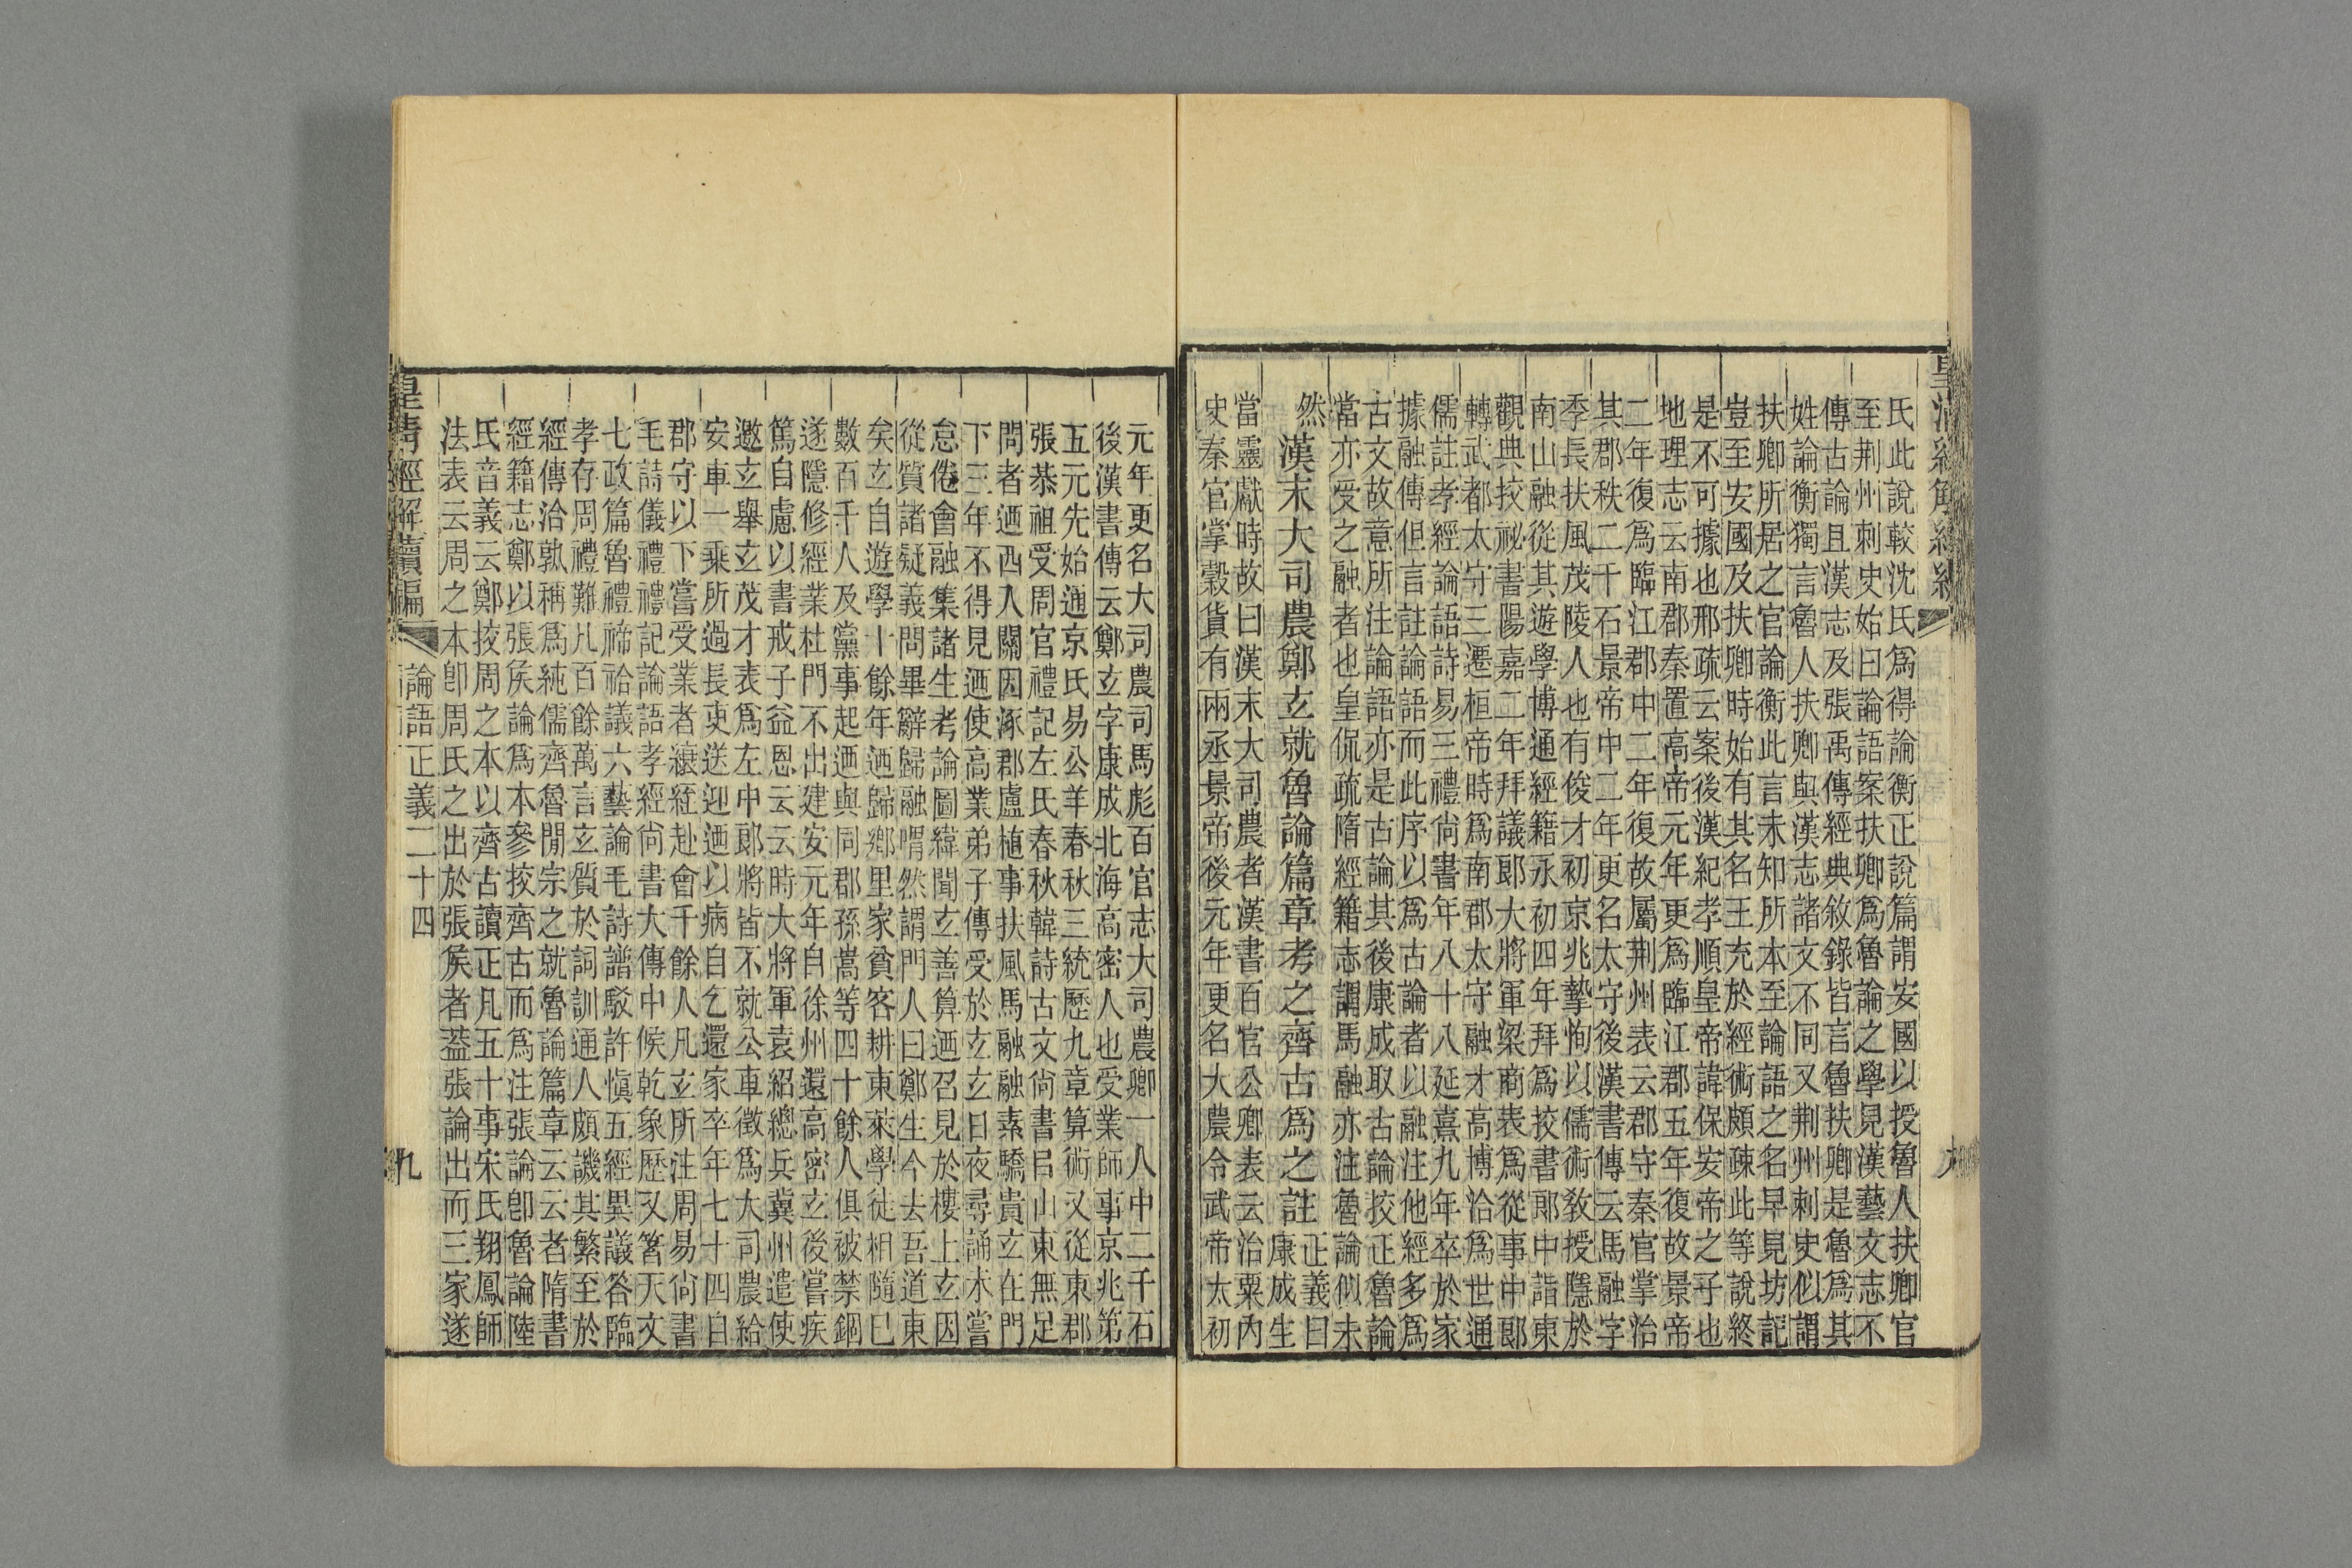 氏此說較沈氏爲得論衡正說篇謂安國以授魯人扶卿官
至荆州刺史始曰論語案扶卿爲魯論之學見漢藝文志不
傳古論且漢志及張禹傳經典敘錄皆言魯扶卿是魯爲其
姓論衡獨言魯人扶卿與漢志諸文不同又荆州刺史似謂
扶卿所居之官論衡此言未知所本至論語之名早見坊記
豈至安國及扶卿時始有其名王充於經術頗疎此等說終
是不可據也邢疏云案後漢紀孝順皇帝諱保安帝之子也
地理志云南郡秦置高帝元年更爲臨江郡五年復故景帝
二年復爲臨江郡中二年復故屬荆州表云郡守秦官掌治
其郡秩二千石景帝中二年更名太守後漢書傳云馬融字
季長扶風茂陵人也有俊才初京兆摯恂以儒術敎授隱於
南山融從其遊學博通經籍永初四年拜爲挍書郎中詣東
觀典挍祕書陽嘉二年拜議郎大將軍梁商表爲從事中郎
轉武都太守三遷桓帝時爲南郡太守融才高博洽爲世通
儒註孝經論語詩易三禮尙書年八十八延熹九年卒於家
據融傳但言註論語而此序以爲古論者以融注他經多爲
古文故意所注論語亦是古論其後康成取古論挍正魯論
當亦受之融者也皇侃疏隋經籍志謂馬融亦注魯論似未
然
漢末大司農鄭玄就魯論篇章考之齊古爲之註
正義曰
康成生
當靈獻時故曰漢末大司農者漢書百官公卿表云治粟內
史秦官掌穀貨有兩丞景帝後元年更名大農令武帝太初
元年更名大司農司馬彪百官志大司農卿一人中二千石
後漢書傳云鄭玄字康成北海高密人也受業師事京兆第
五元先始通京氏易公羊春秋三統歷九章算術又從東郡
張恭祖受周官禮記左氏春秋韓詩古文尙書㠯山東無足
問者迺西入關因涿郡盧植事扶風馬融融素驕貴玄在門
下三年不得見迺使高業弟子傳受於玄玄日夜尋誦未嘗
怠倦會融集諸生考論圖緯聞玄善算迺召見於樓上玄因
從質諸疑義問畢辭歸融喟然謂門人曰鄭生今去吾道東
矣玄自遊學十餘年迺歸鄕里家貧客耕東萊學徒相隨已
數百千人及黨事起迺與同郡孫嵩等四十餘人俱被禁錮
遂隱修經業杜門不出建安元年自徐州還高密玄後嘗疾
篤自慮以書戒子益恩云云時大將軍袁紹總兵冀州遣使
邀玄舉玄茂才表爲左中郎將皆不就公車徵爲大司農給
安車一乘所過長吏送迎迺以病自乞還家卒年七十四自
郡守以下嘗受業者縗絰赴會千餘人凡玄所注周易尙書
毛詩儀禮禮記論語孝經尙書大傳中候乾象歷又箸天文
七政篇魯禮禘祫議六藝論毛詩譜駁許愼五經異議答臨
孝存周禮難凡百餘萬言玄質於詞訓通人頗譏其繁至於
經傳洽孰稱爲純儒齊魯閒宗之就魯論篇章云云者隋書
經籍志鄭以張侯論爲本參挍齊古而爲注張論卽魯論陸
氏音義云鄭挍周之本以齊古讀正凡五十事宋氏翔鳳師
法表云周之本卽周氏之出於張侯者葢張論出而三家遂
皇清經解續編
論語正義二十四
九